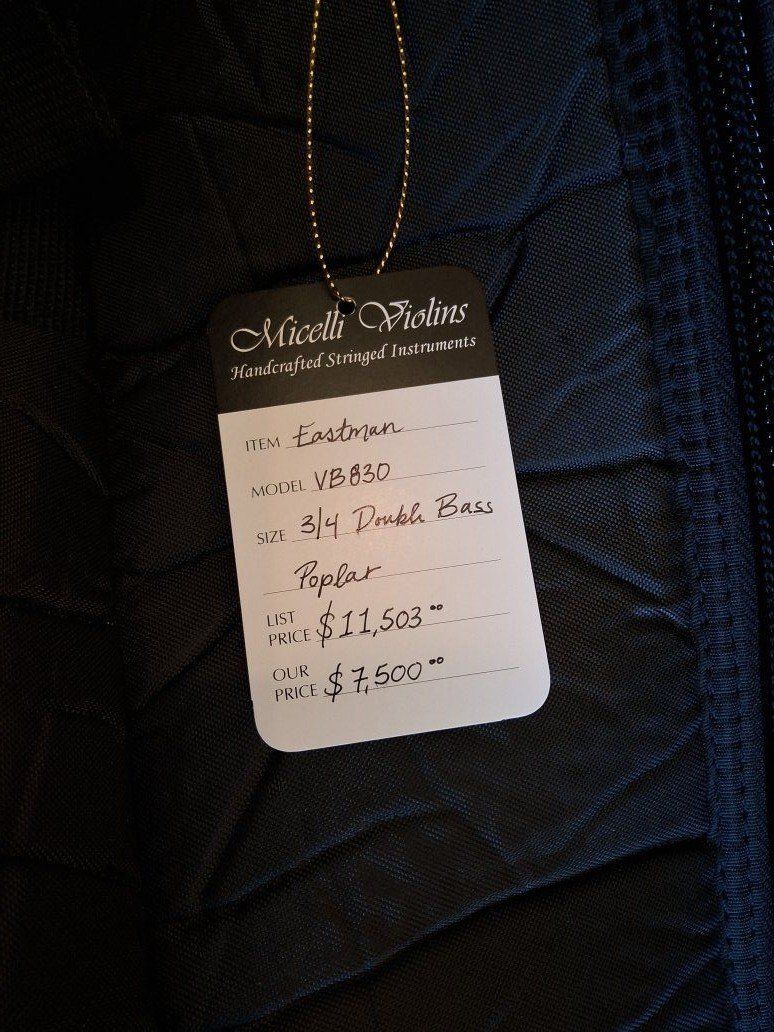 Micelli Violins
Handcrafted Stringed Instruments
ITEM Eastman
MODEL VB830
SIZE 3/4 Double Bass
Poplar
LIST
PRICE $11,503.00
OUR
PRICE $7,500.00